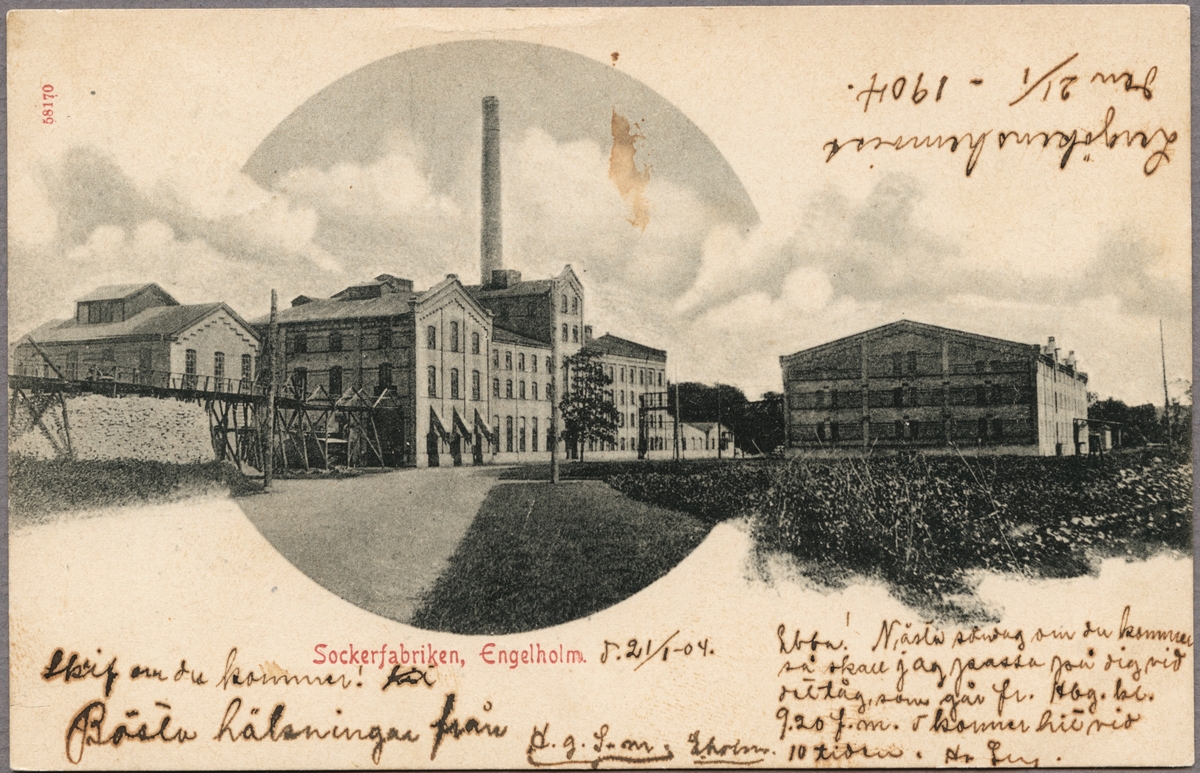 58170
den 21/1 - 1904.
Sockerfabriken, Engelholm.
d. 21/1-04.
Skrif om du kommer!
Bästa hälsningar från
H. g. S-m, Eholm.
Ebba! Nästa söndag om du kommer
så skall jag passa på dig vid
det tåg, som går fr. Hbg. kl.
9.20 f.m. o kommer hit vid
10 tiden.